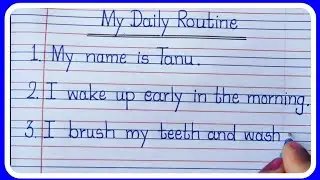 My Daily Routine
1. My name is Tanu.
2. I wake up early in the morning.
3. I brush my teeth and wash